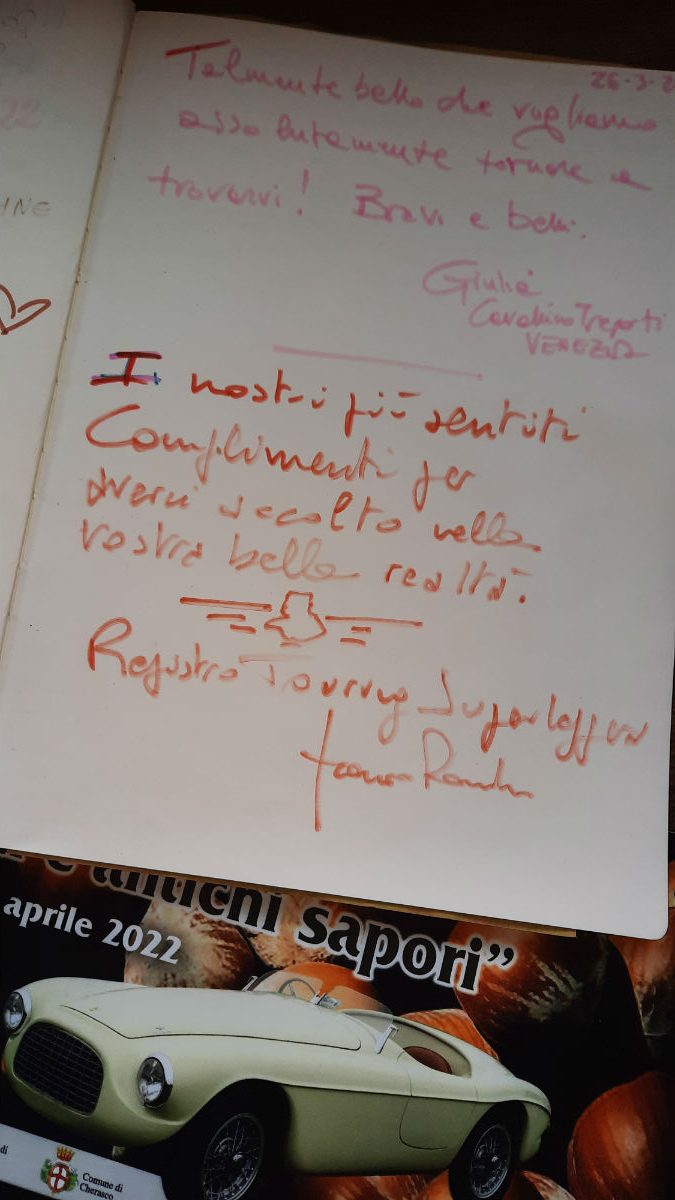 22
INE
26-3-2
Talmente bello che vogliamo
assolutamente tornare a
trovarvi! Bravi e belli.
Giulia
Cavallino Treporti
VENEZIA
I nostri più sentiti
Complimenti per
averci accolto nella
vostra bella realtà.
Registro Touring Superleggera
antichi sapori”
aprile 2022
di
Comune di
Cherasco